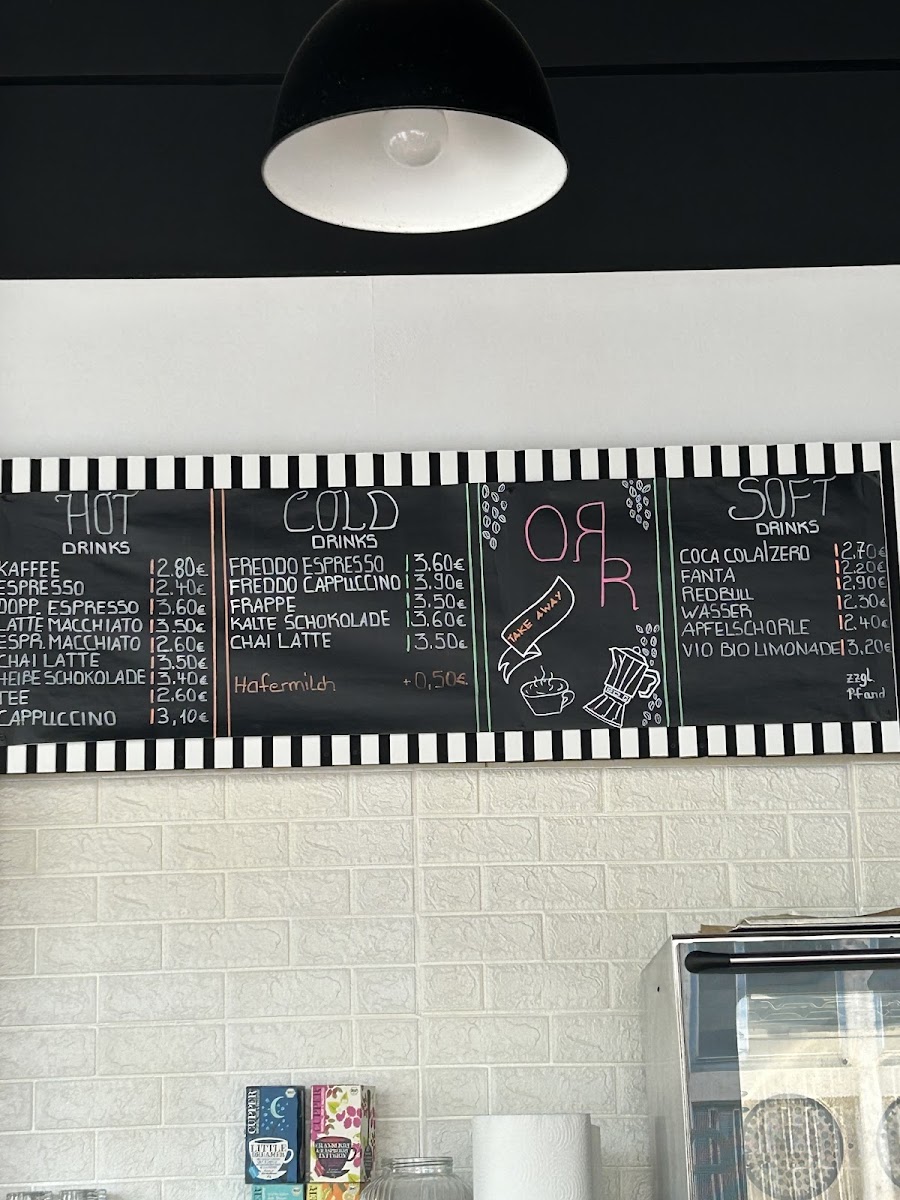 HOT
DRINKS
KAFFEE 2.80€
ESPRESSO 2.40€
DOPP. ESPRESSO 3.60€
LATTE MACCHIATO 3.50€
ESPR. MACCHIATO 2.60€
CHAI LATTE 3.50€
HEIßE SCHOKOLADE 3.40€
TEE 2.60€
CAPPUCCINO 3,10€
COLD
DRINKS
FREDDO ESPRESSO 3.60€
FREDDO CAPPUCCINO 3.90€
FRAPPE 3.50€
KALTE SCHOKOLADE 3.60€
CHAI LATTE 3.50€
Hafermilch +0,50€
OR
R
TAKE AWAY
SOFT
DRINKS
COCA COLA/ZERO 2.70€
FANTA 2.20€
REDBULL 2,90€
WASSER 2.30€
APFELSCHORLE 2.40€
VIO BIO LIMONADE 3,20€
zzgl.
Pfand
CUPPER
LITTLE
DREAMER
CUPPER
CRANBERRY
& RASPBERRY
INFUSION